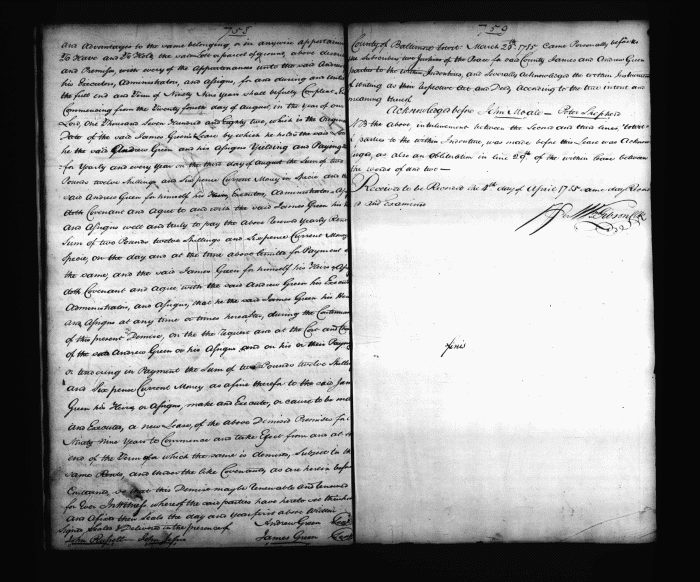 755
and Advantages to the same belonging, or in anywise appertaining
To Have and To Hold, the said Lot or parcel of ground, above
and Premises, with every of the Appurtenances unto the said Andrew
his Executors, Administrators, and Assigns, for and during and
the full end and Term of Ninety Nine Years
Commencing from the Twenty fourth day of August, in the year of our
Lord, One Thousand Seven Hundred and Eighty two, which is the Original
Date of the said James Green's Lease by which he holds the said
he the said Andrew Green and his Assigns Yeilding and Paying
for Yearly and every Year on the third day of August the Sum of two
Pounds twelve Shillings and Sixpence Current Money in Specie and the
said Andrew Green for himself his Heirs, Executors, Administrators
doth Covenant and Agree to and with the said James Green his
and Assigns well and truly to pay the above Yearly Rent
Sum of two Pounds twelve Shillings and Sixpence Current Money
Specie, on the day and at the time above limited for Payment of
the same, and the said James Green for himself his Heirs
doth Covenant and Agree with the said Andrew Green his
Administrators, and Assigns, that he the said James Green his Heirs
and Assigns at any time or times hereafter, during the Continuance
of this present Demise, on the the request and at the Cost and
of the said Andrew Green or his Assigns and on his or their Paying
or tendering in Payment the Sum of two Pounds twelve Shillings
and Six pence Current Money as aforesaid to the said James
Green his Heirs or Assigns, make and Execute, or cause to be made
and Executed, a new Lease, of the above Demised Premises for
Ninety Nine Years to Commence and take Effect from and at the
end of the Term for which the same is demised, Subject to the
same Rents, and the like Covenants, as are herein before
so that this Demise may be Renewable and Renewed
for Ever In Witness whereof the said parties have hereto set their hands
and Affixed their Seals the day and year first above Written
Signed Sealed & Delivered in the presence of Andrew Green
John James Green
759
County of Baltimore March 28th. 1785 Came Personally before
the Subscribers two Justices of the Peace for said County James and Andrew Green
parties to the within Indenture, and Severally Acknowledged the within Instrument
of Writing as their Respective Act and Deed, According to the true intent and
meaning thereof
Acknowledged before John Moale - Peter Shepherd
NB the above interlinement between the Second and third lines
parties to the within Indenture, was made before this Lease was Acknow
ledged, as also an Obliteration in line 29th of the within Lease between
the words of and two —
Received to be Recorded the 4th day of April 1785 same day Recorded
and Examined
Wm Gibson Clk
Finis